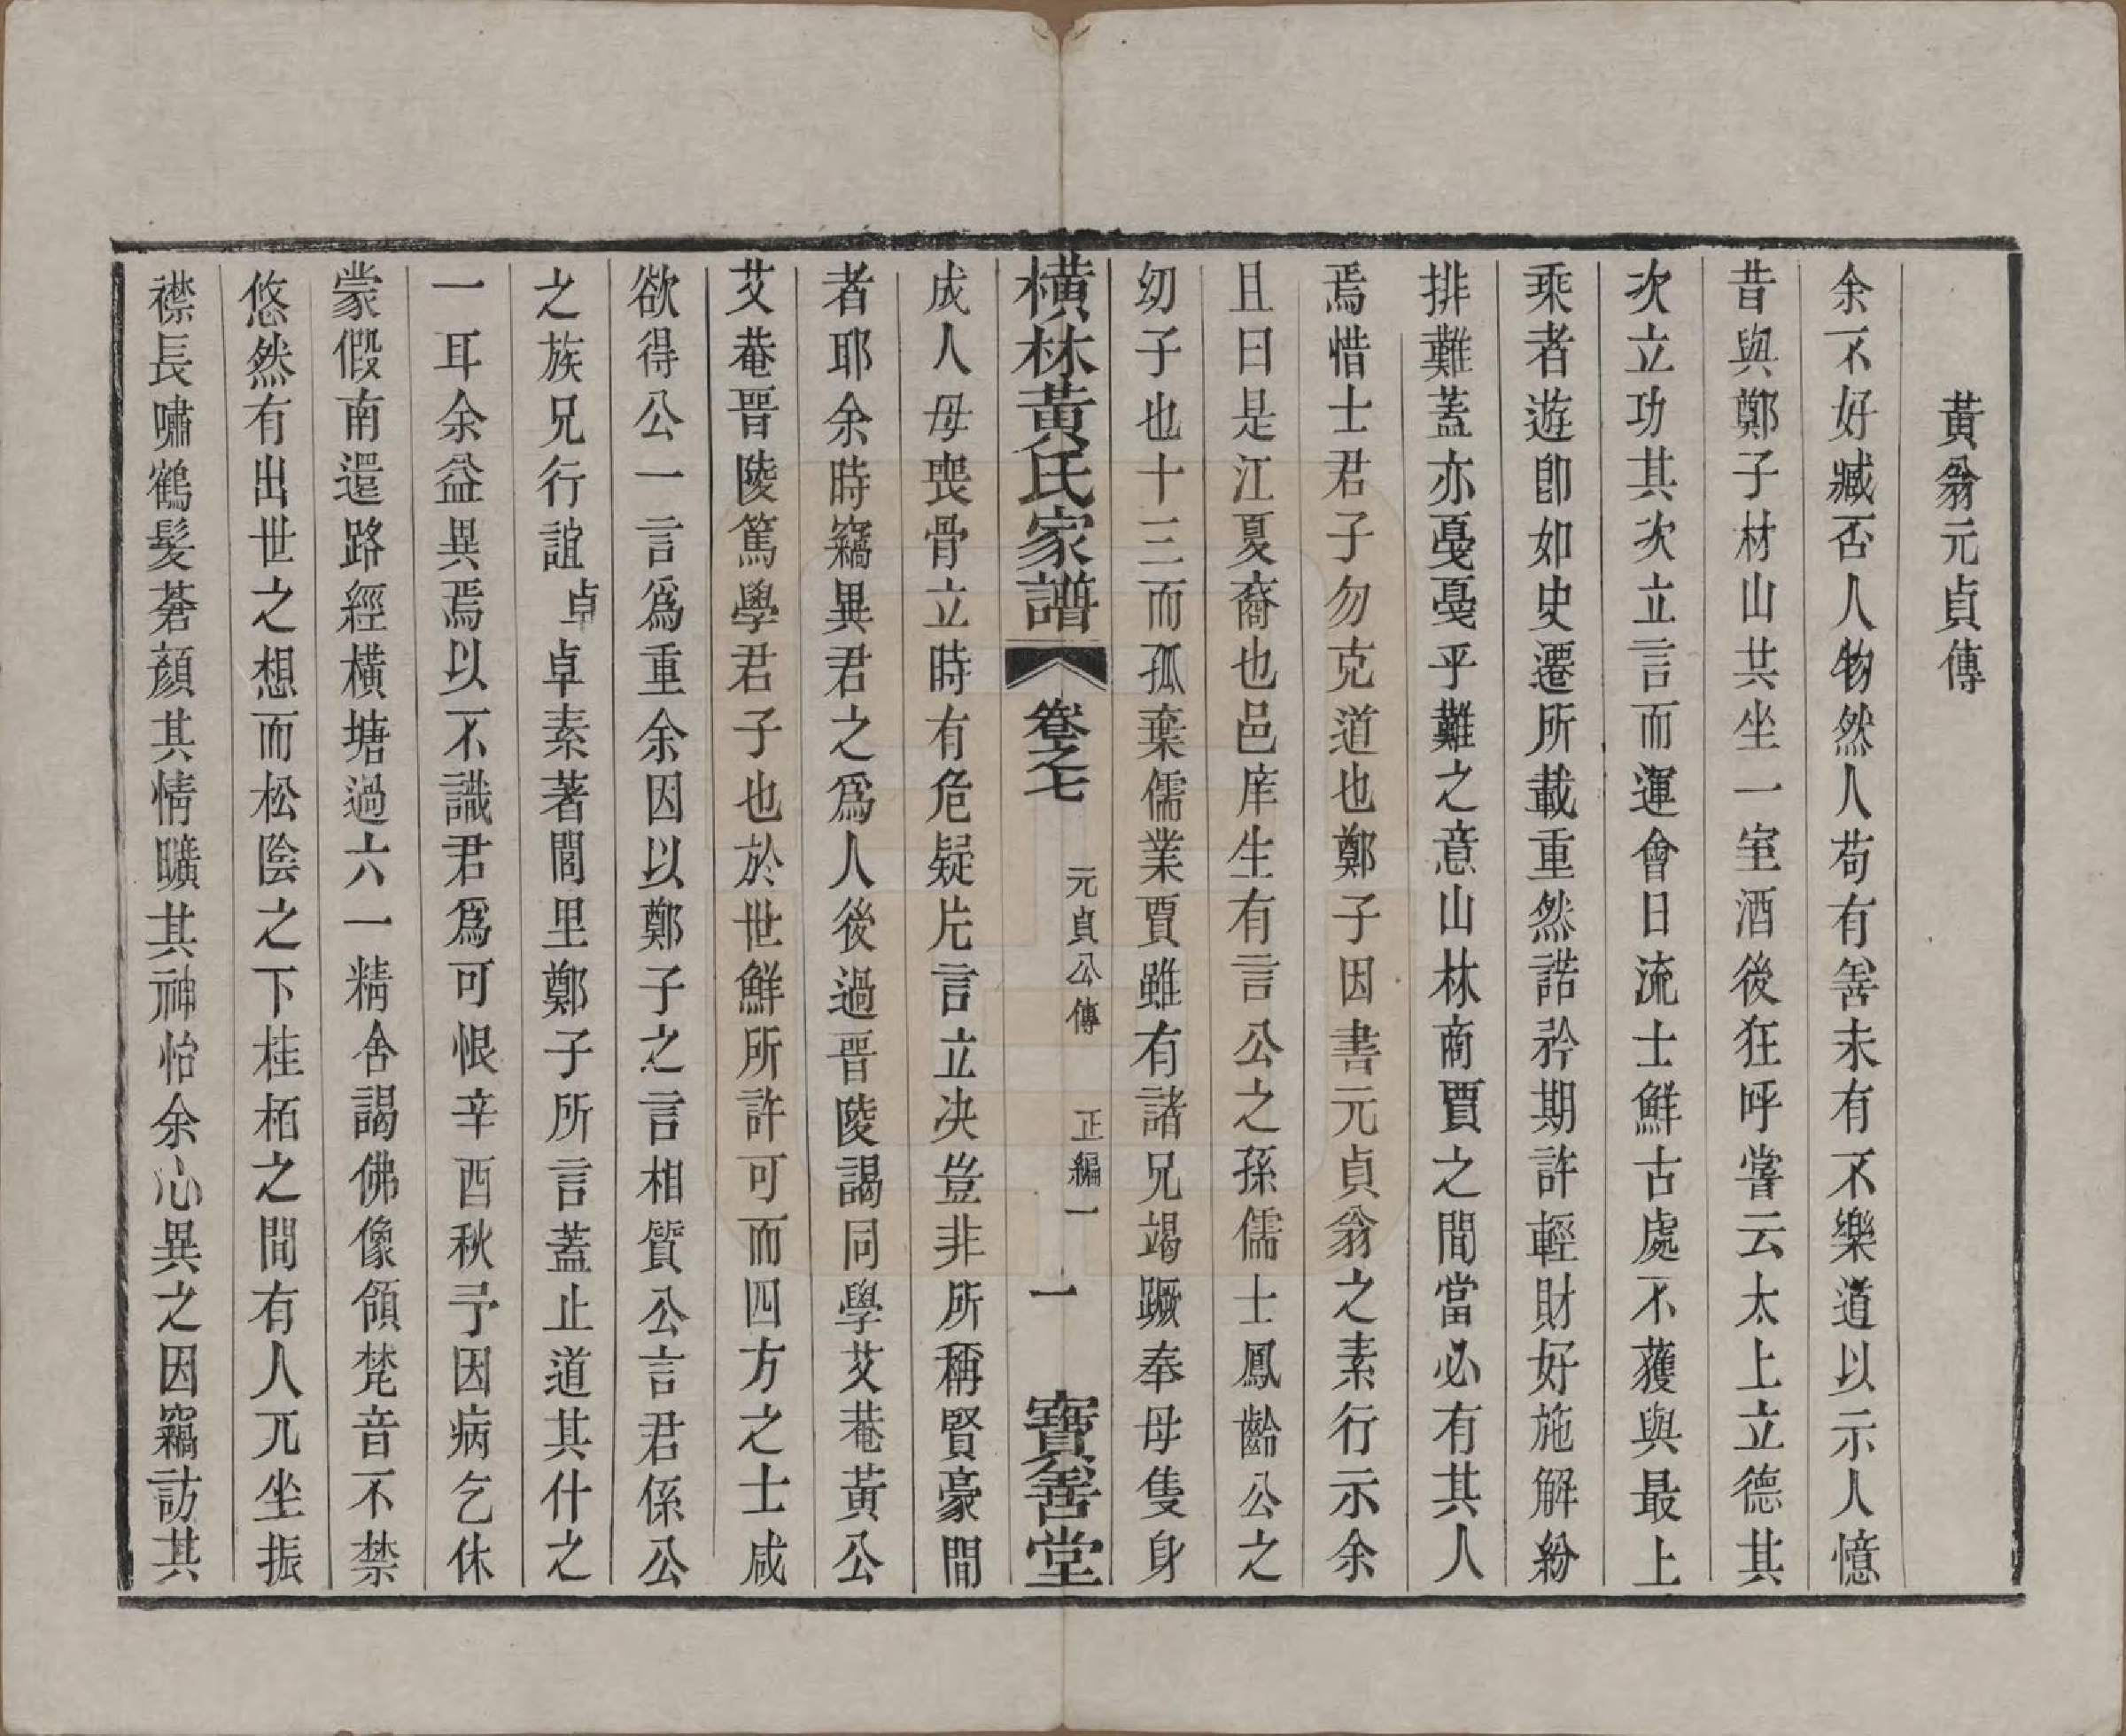 黃翁元貞傳
余不好臧否人物然人苟有善未有不樂道以示人憶
昔與鄭子材山共坐一室酒後狂呼嘗云太上立德其
次立功其次立言而運會日流士鮮古處不獲與最上
乘者遊卽如史遷所載重然諾矜期許輕財好施解紛
排難蓋亦戛戛乎難之意山林商賈之間當必有其人
焉惜士君子勿克道也鄭子因書元貞翁之素行示余
且曰是江夏裔也邑庠生有言公之孫儒士鳳齡公之
幼子也十三而孤棄儒業賈雖有諸兄竭蹶奉母隻身
橫林黃氏家譜 卷之七 元貞公傳 正編一 一 寶善堂
成人母喪骨立時有危疑片言立决豈非所稱賢豪間
者耶余時竊異君之爲人後過晋陵謁同學艾菴黃公
艾菴晋陵篤學君子也於世鮮所許可而四方之士咸
欲得公一言爲重余因以鄭子之言相質公言君係公
之族兄行誼卓卓素著閭里鄭子所言蓋止道其什之
一耳余益異焉以不識君爲可恨辛酉秋予因病乞休
蒙假南還路經橫塘過六一精舍謁佛像領梵音不禁
悠然有出世之想而松陰之下桂栢之間有人兀坐振
襟長嘯鶴髮蒼顏其情曠其神怡余心異之因竊訪其